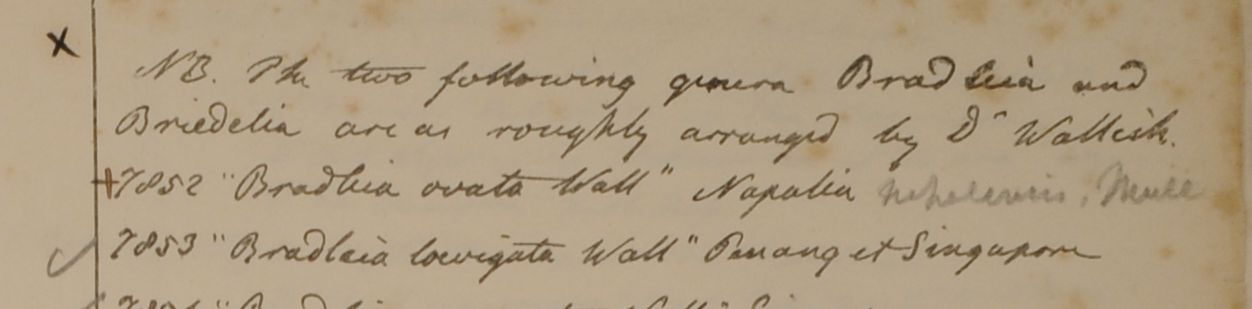 X
NB. The two following genera Bradleia and
Briedelia are as roughly arranged by Dr Wallich.
+7852 "Bradleia ovata Wall" Napalia nepalensis, Muell
7853 "Bradleia loevigata Wall" Penang et Singapore